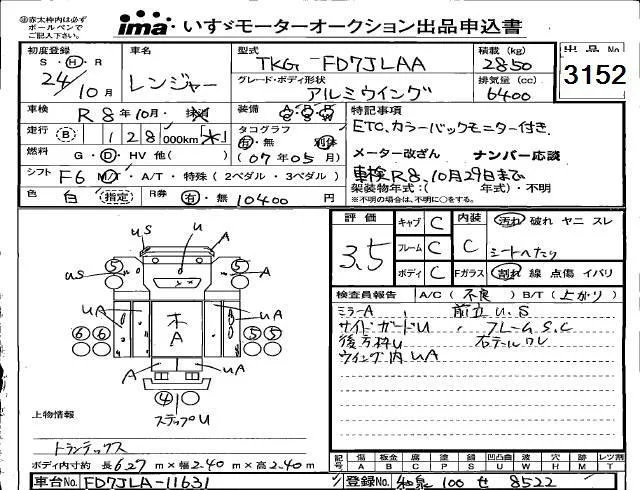 ㊟赤太枠内は必ず
ボールペンで
ご記入下さい。
ima いすゞモーターオークション出品申込書
初度登録 S・H・R 24/10月
車名 レンジャー
型式 TKG-FD7JLAA
積載 (kg) 2850
出品No. 3152
グレード・ボディ形状 アルミウイング
排気量 (cc) 6400
車検 R8年10月・抹消
装備
特記事項
ETC、カラーバックモニター付き
走行 (B) 128,000km(木)
タコグラフ 有・無 別体
(07年05月)
メーター改ざん ナンバー応談
燃料 G・D・HV 他( )
車検R8.10月29日まで
シフト F6 M/T・A/T・特殊(2ペダル・3ペダル)
架装物年式:( 年式)・不明
※不明の場合は、不明に○をする。
色 白 (指定) R券 有・無 10400円
評価 3.5
キャブ C 内装 C 汚れ 破れ ヤニ スレ
フレーム C シートへたり
ボディ C Fガラス 割れ 線 点傷 イバリ
検査員報告 A/C(不良) B/T(上がり)
ミラーA、前立U.S
サイドガードU、フレームS.C
後方枠U 右テールワレ
ウイング内UA
U
uS A
5 5
uS A
uA uA
木
A
6 6 5 5
A uA
4
ステップU
上物情報
トランテックス
ボディ内寸約 長6.27m×幅2.40m×高2.40m
記号 傷 板金 腐 塗 鉄 凹凸曲 波 穴 時 レツ割
A B C P S U W H M T
車台No. FD7JLA-11631
登録No. 和泉 100 せ 8522